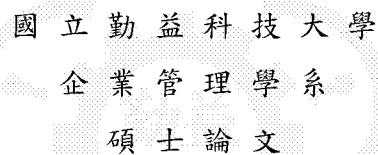 國立勤益科技大學
企業管理學系
碩士論文